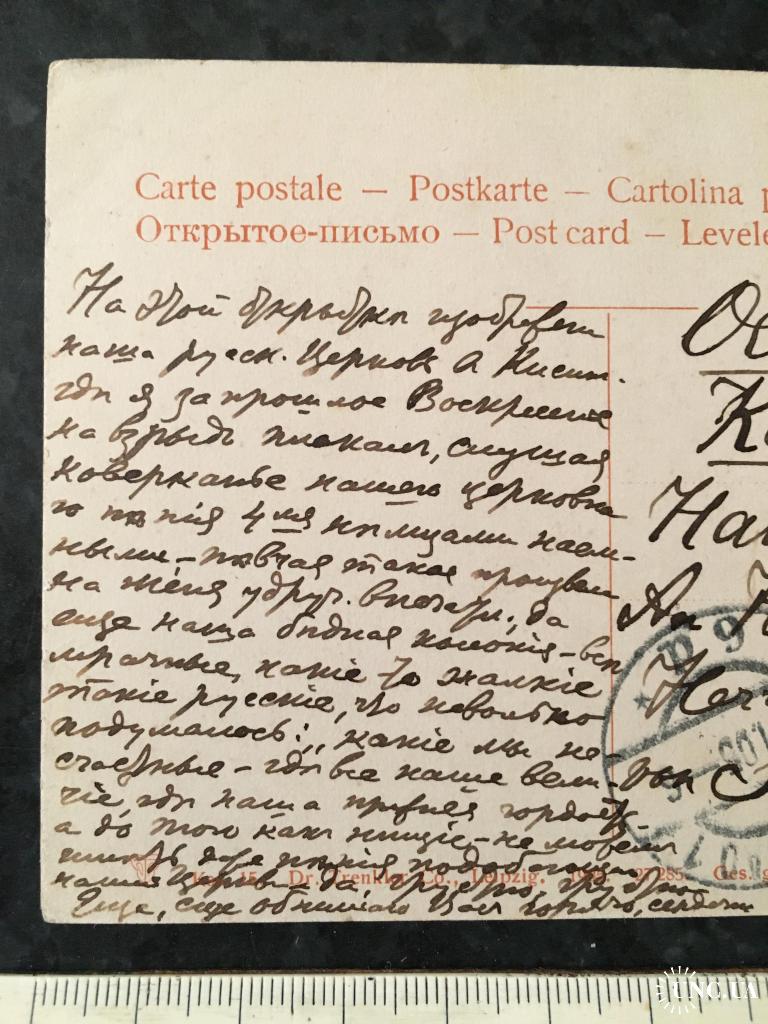 Carte postale — Postkarte — Cartolina p
Открытое-письмо — Post card — Levele
На этой открыткѣ изображен
наша русск. Церковь
гдѣ я за прошлое Воскресенье
навзрыдъ плакалъ, слушая
коверканье нашего церковна
го пѣнія 4мя нѣмцами наем-
ными,- пѣвчая такое произвели
на меня удруч. впечатл., да
еще наша бѣдная колонія - всѣ
мрачные, какіе то жалкіе
такіе русскіе, что невольно
подумалось: „какіе мы не-
счастные - гдѣ все наше вели-
чіе, гдѣ наша прежняя гордость,
а до того какъ нищіе - не можемъ
имѣть даже пѣнія подобающаго
нашей Церкви, да, грустно, грустно
Еще, еще обнимаю Васъ горячо, сердечн
Ос
К
На
An
Herr
von
Dr. Trenkler Co., Leipzig.
Ges. g
UNC.UA